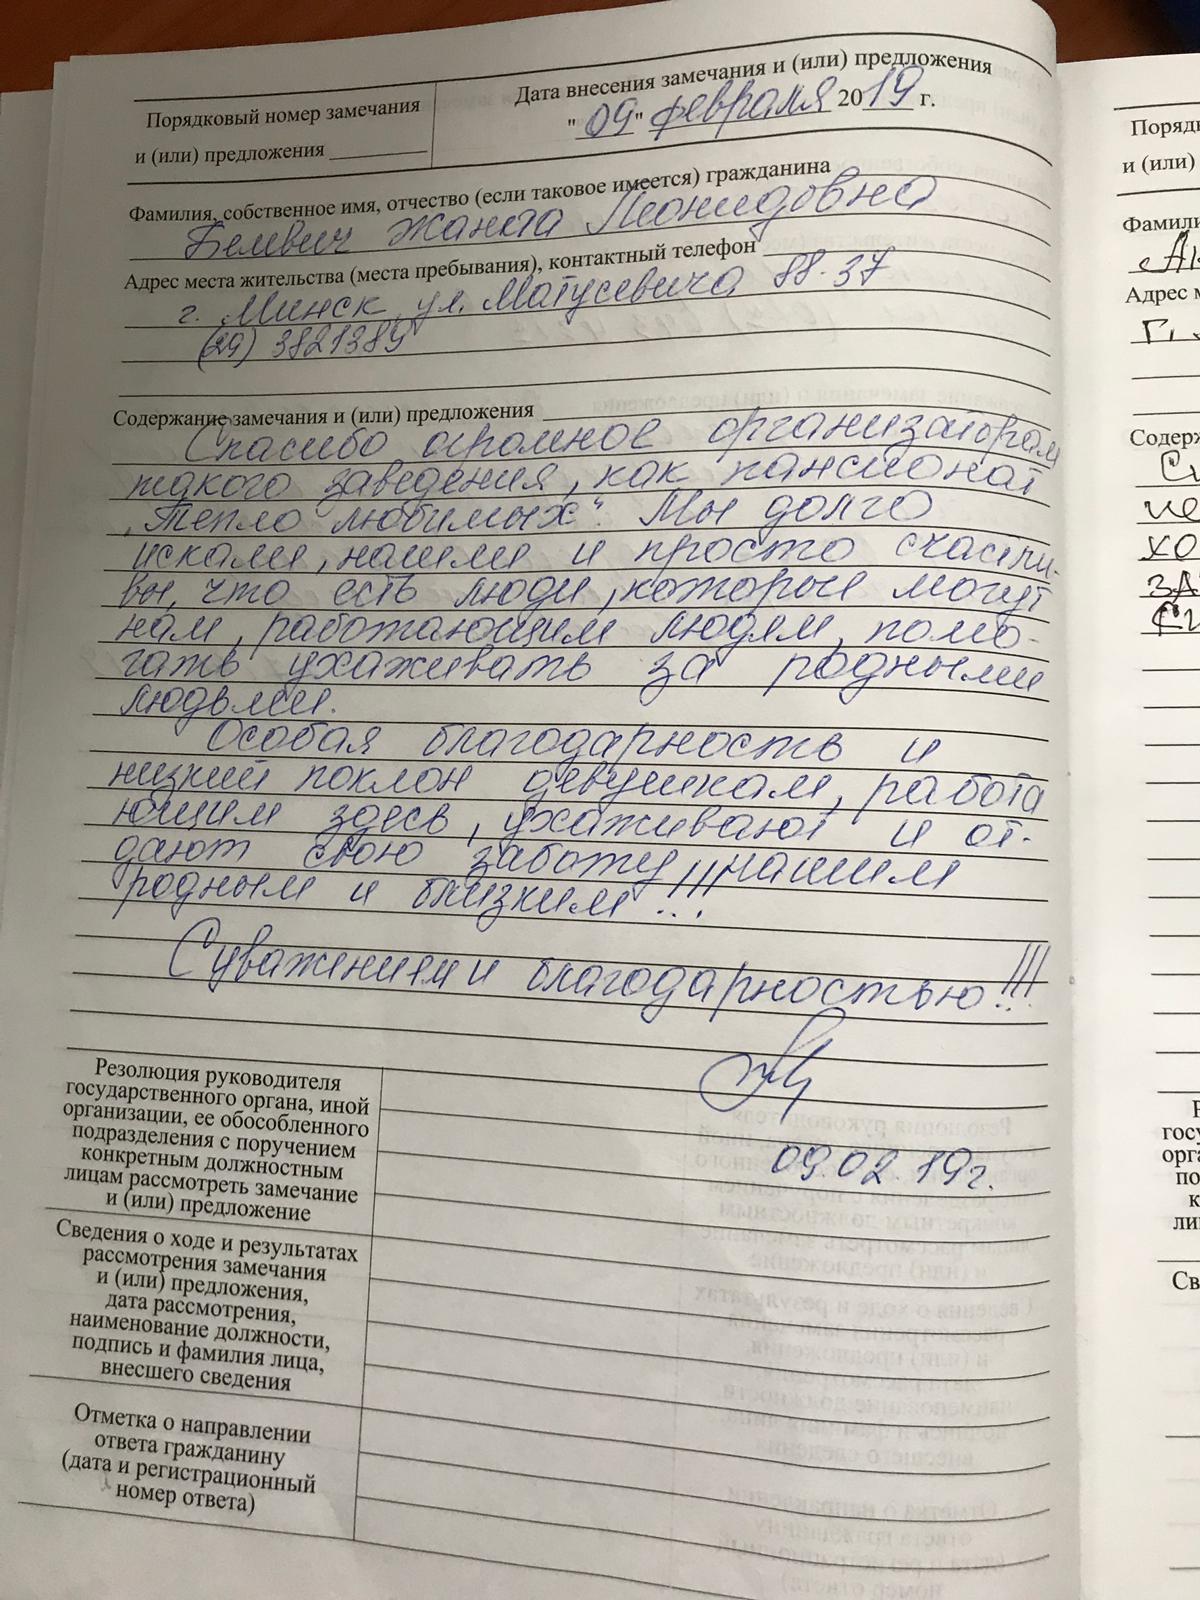 Порядковый номер замечания
и (или) предложения
Дата внесения замечания и (или) предложения
"09" февраля 2019 г.
Фамилия, собственное имя, отчество (если таковое имеется) гражданина
Жанна Леонидовна
Адрес места жительства (места пребывания), контактный телефон
г. Минск, ул. Матусевича 88-37
(29) 3821389
Содержание замечания и (или) предложения
Спасибо огромное организаторам
такого заведения, как пансионат
"Тепло любимых". Мы долго
искали, нашли и просто счастли-
вы, что есть люди, которые могут
нам, работающим людям, помо-
гать ухаживать за родными
людьми.
Особая благодарность и
низкий поклон девушкам, работа
ющим здесь, ухаживают и от-
дают свою заботу нашим
родным и близким!!!
С уважением и благодарностью!!!
09.02.19г.
Резолюция руководителя
государственного органа, иной
организации, ее обособленного
подразделения с поручением
конкретным должностным
лицам рассмотреть замечание
и (или) предложение
Сведения о ходе и результатах
рассмотрения замечания
и (или) предложения,
дата рассмотрения,
наименование должности,
подпись и фамилия лица,
внесшего сведения
Отметка о направлении
ответа гражданину
(дата и регистрационный
номер ответа)
и (или)